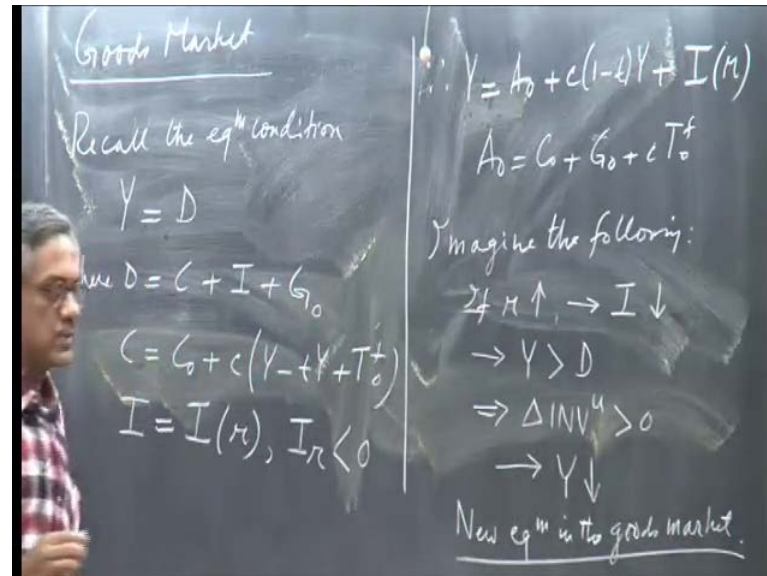 Goods Market
Recall the eqᵐ condition
Y = D
where D = C + I + G₀
C = C₀ + c(Y - tY + T₀ᶠ)
I = I(r), Iᵣ < 0
∴ Y = A₀ + c(1-t)Y + I(r)
A₀ = C₀ + G₀ + c T₀ᶠ
Imagine the following:
If r ↑, → I ↓
→ Y > D
⇒ ΔINVᵘ > 0
→ Y↓
New eqᵐ in the goods market.